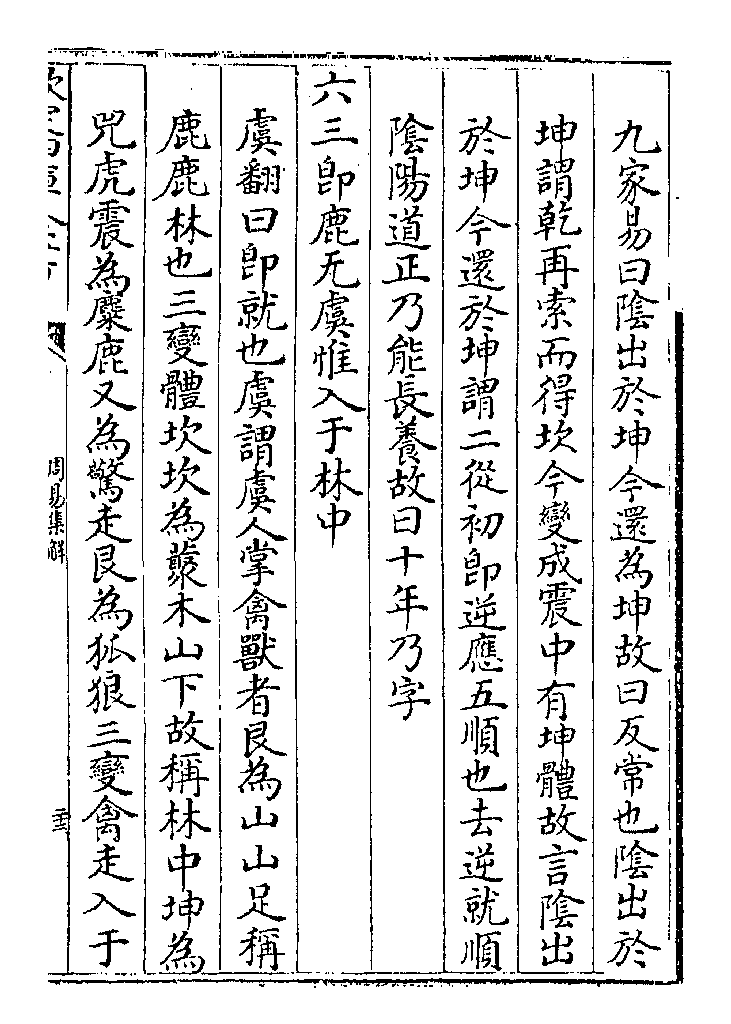 九家易曰陰出於坤今還為坤故曰反常也陰出於
坤謂乾再索而得坎今變成震中有坤體故言陰出
於坤今還於坤謂二從初即逆應五順也去逆就順
陰陽道正乃能長養故曰十年乃字
六三即鹿无虞惟入于林中
虞翻曰即就也虞謂虞人掌禽獸者艮為山山足稱
鹿鹿林也三變體坎坎為藂木山下故稱林中坤為
兕虎震為麋鹿又為驚走艮為狐狼三變禽走入于
周易集解